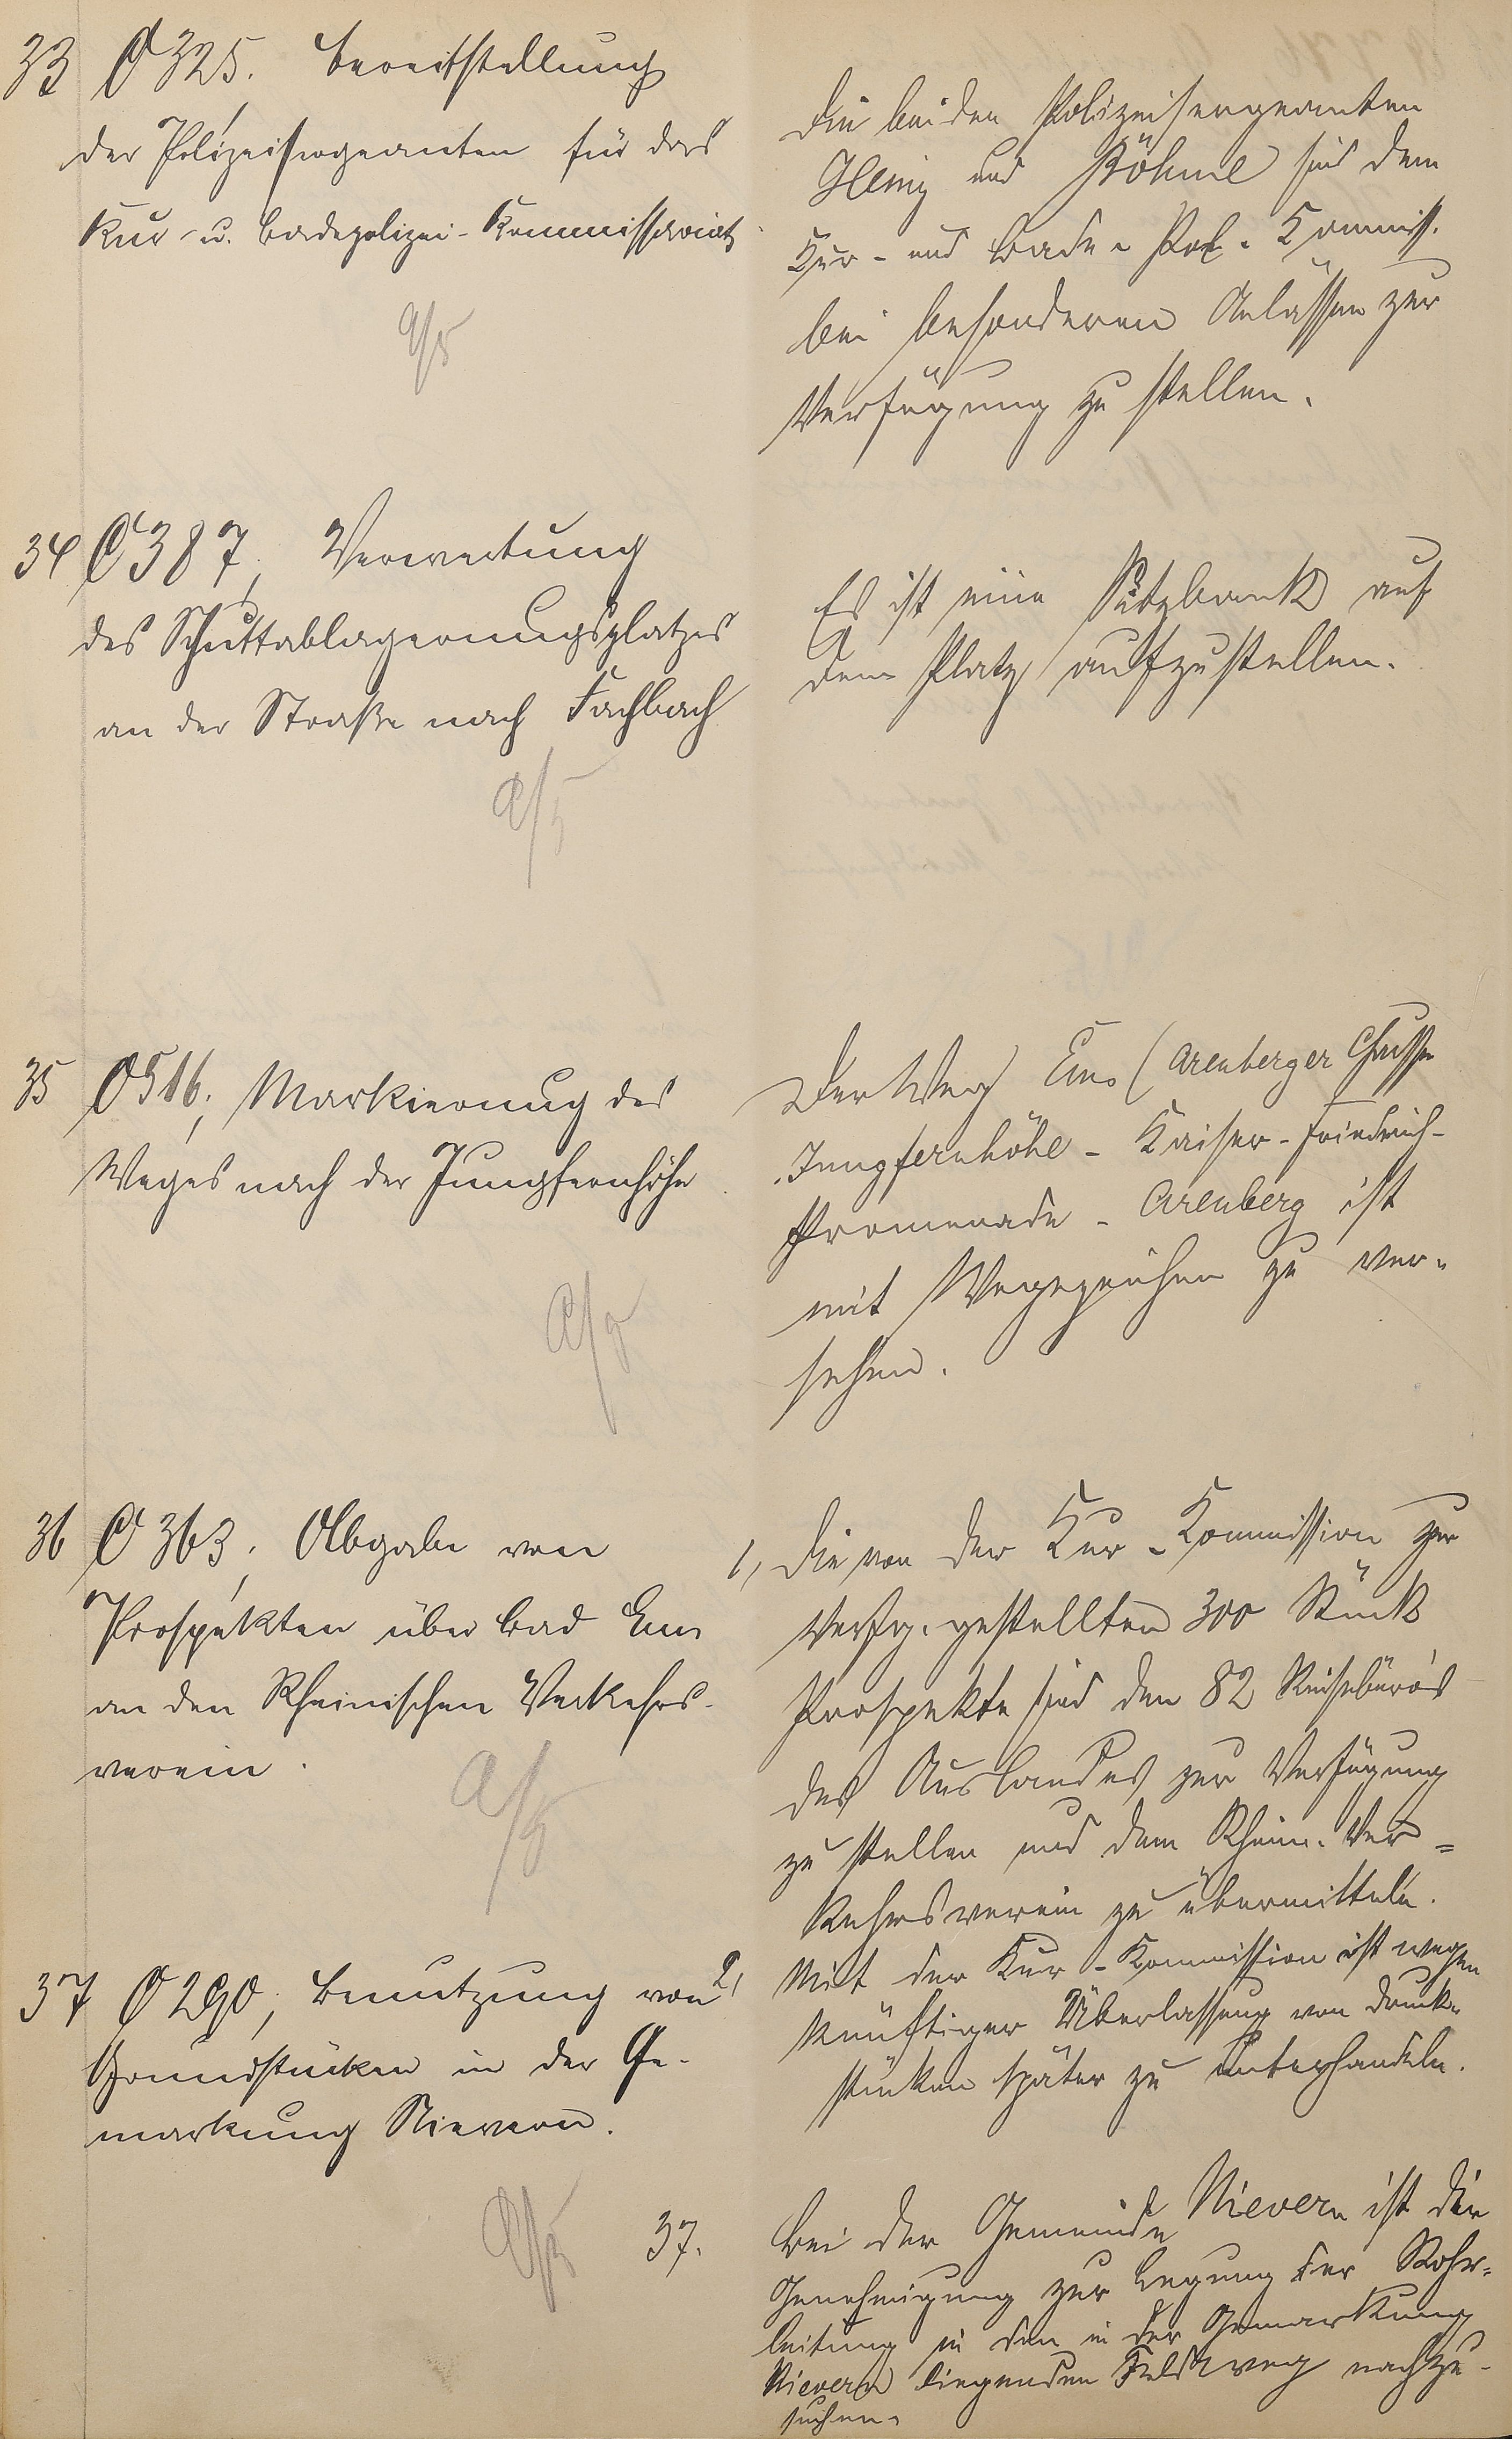 33 O 325. Bereitstellung
der Polizeisergeanten für das
Kur- u. Badepolizei-Kommissariat
Die beiden Polizeisergeanten
und Böhme sind dem
Kur- und Bade-Pol. Kommiss.
bei besonderen Anlässen zur
Verfügung zu stellen.
34 C 387, Verwertung
des Schuttablagerungsplatzes
an der Straße nach Fachbach
Es ist eine Sitzbank auf
dem Platz aufzustellen.
35 O 516, Markierung des
Weges nach der Jungfernhöhe
Der Weg Ems (Arenberger Chaussee
Jungfernhöhe - Kaiser-Friedrich-
Promenade - Arenberg ist
mit Wegezeichen zu ver-
sehen.
36 O 363, Abgabe von
Prospekten über Bad Ems
an den Rheinischen Verkehrs-
verein.
1, Die von der Kur-Kommission zur
Verfg. gestellten 300 Stück
Prospekte sind den 82 Reisebüros
des Auslandes zur Verfügung
zu stellen und dem Rhein. Ver=
kehrsverein zu übermitteln.
2, Mit der Kur-Kommission ist wegen
künftiger Überlassung von Druck-
stücken später zu unterhandeln.
37 O 290, Benutzung von
Grundstücken in der Ge-
markung Nievern.
37. Bei der Gemeinde Nievern ist die
Genehmigung zur Legung der Rohr-
leitung in den in der Gemarkung
Nievern liegenden Feldweg nachzu-
suchen.